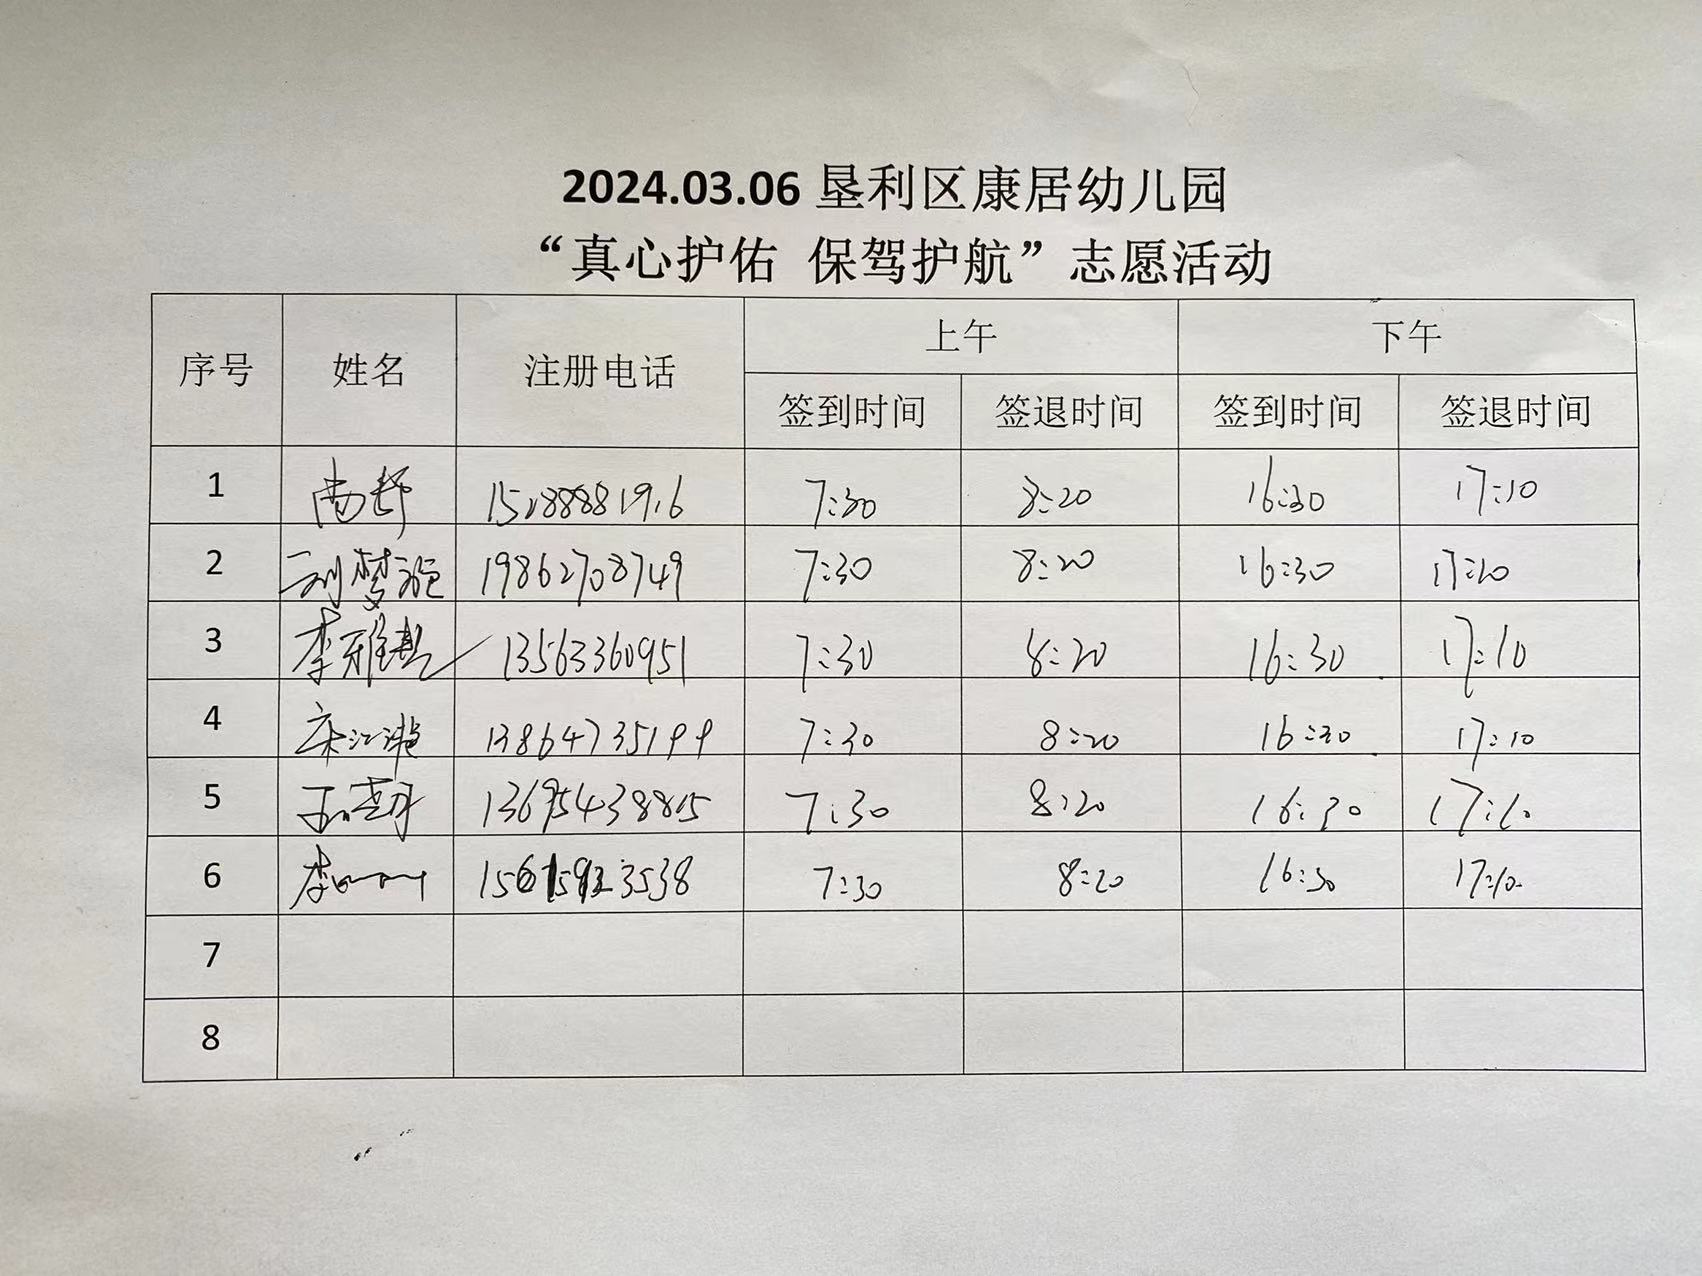 2024.03.06 垦利区康居幼儿园
“真心护佑 保驾护航”志愿活动
序号 姓名 注册电话 上午 下午
签到时间 签退时间 签到时间 签退时间
1 7:30 8:20 16:30 17:10
2 刘梦 19862708749 7:30 8:20 16:30 17:10
3 李雅 13563360951 7:30 8:20 16:30 17:10
4 宋江滟 13864735199 7:30 8:20 16:30 17:10
5 13695438815 7:30 8:20 16:30 17:10
6 李 7:30 8:20 16:30 17:10
7
8